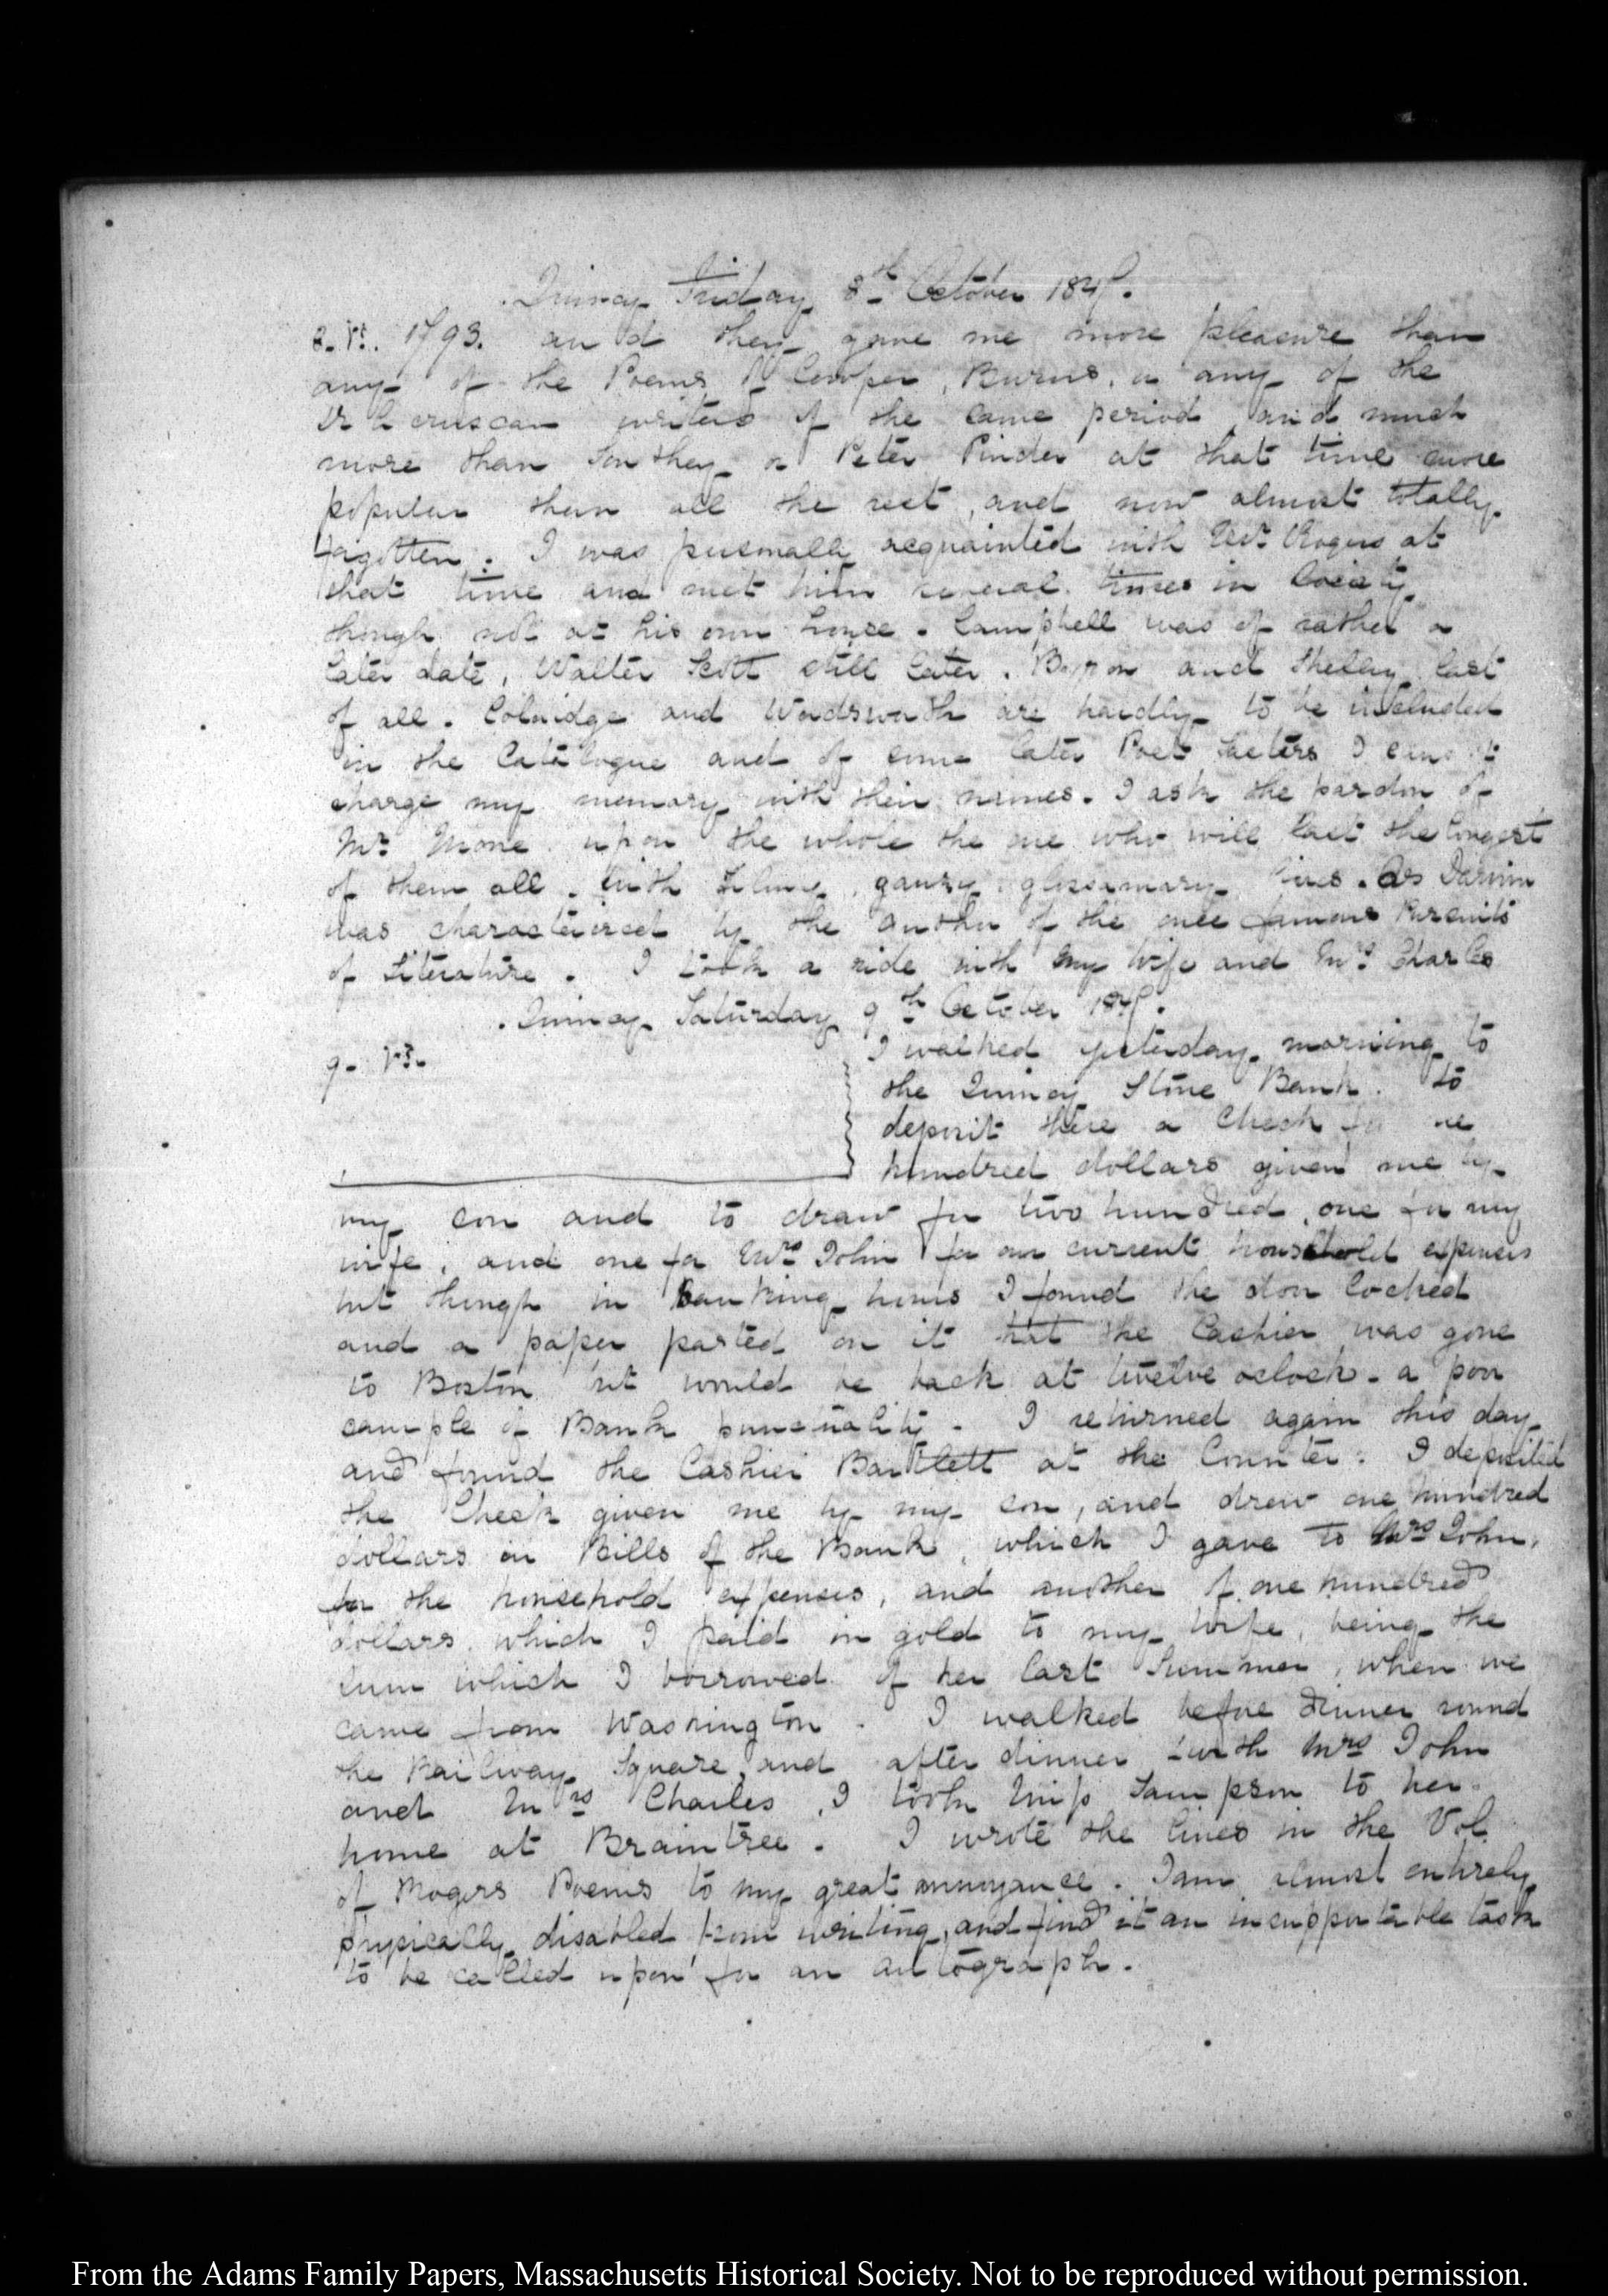 Quincy Friday 8th October 1847.
8. VI. 1793. and they gave me more pleasure than
any of the Poems of Cowper, Burns, or any of the
Cruscan writers of the same period and much
more than Southey or Peter Pindar at that time more
popular than all the rest, and now almost totally
forgotten. I was personally acquainted with Mr. Rogers at
that time and met him several times in Society
though not at his own house. Campbell was of rather a
later date, Walter Scott still later. Byron and Shelley last
of all. Colridge and Wordsworth are hardly to be included
in the Catalogue and of some later Poet I cannot
charge my memory with their names. I ask the pardon of
Mr. Moore upon the whole the one who will last the longest
of them all. with filmy, gauzy, gossamary lines. as Darwin
was characterized by the author of the once famous Pursuits
of Literature. I took a ride with my wife and Mrs. Charles
Quincy Saturday 9th October 1847.
9. VI.
I walked yesterday morning to
the Quincy Stone Bank. to
deposit there a Check for one
hundred dollars given me by
my son and to draw for two hundred, one for my
wife, and one for Mrs. John for our current household expenses
but though in Banking hours I found the door locked
and a paper pasted on it that the Cashier was gone
to Boston but would be back at twelve oclock. a poor
sample of Bank punctuality. I returned again this day
and found the Cashier Bartlett at the Counter: I deposited
the Check given me by my son, and drew one hundred
dollars in Bills of the Bank, which I gave to Mrs John,
for the household expenses, and another of one hundred
dollars which I paid in gold to my wife, being the
sum which I borrowed of her last Summer, when we
came from Washington. I walked before dinner round
the Railway Square, and after dinner with Mrs John
and Mrs Charles, I took Miss Sampson to her
home at Braintree. I wrote the lines in the Vol
of Rogers Poems to my great annoyance. I am almost entirely
physically disabled from writing, and find it an insupportable task
to be called upon for an autograph.
From the Adams Family Papers, Massachusetts Historical Society. Not to be reproduced without permission.